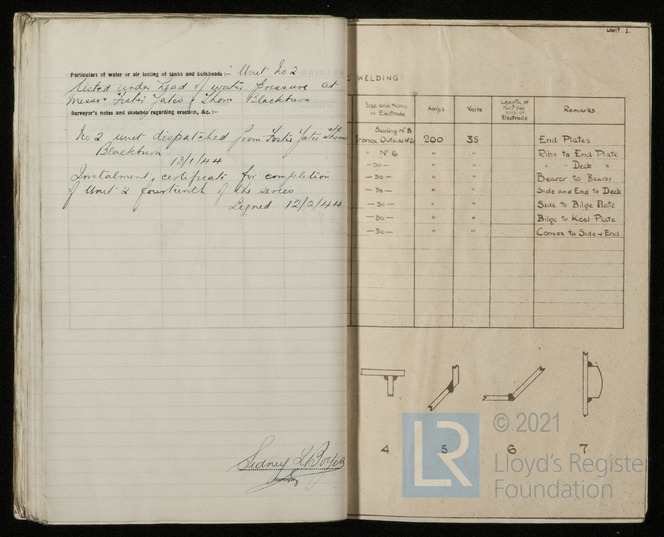 Particulars of water or air testing of tanks and bulkheads :- Unit No 2
tested under head of water pressure at
Messrs Foster Yates & Thom Blackburn
Surveyor's notes and sketches regarding erection, &c. :-
No 2 unit dispatched from Foster Yates & Thom
Blackburn
13/1/44
Instalment, certificate for completion
of Unit 2 fourteenth of the series
Signed 12/2/44
Sidney
UNIT. 1.
WELDING
Size and Name of Electrode Amps Volts Length of Electrode Remarks.
Nº 8 200 35 End Plates
" Nº 6 " " Ribs to End Plate
— Do — " " " " Deck "
— Do — " " Bearer to Bearer
— Do — " " Side and End to Deck
— Do — " " Side to Bilge Plate
— Do — " " Bilge to Keel Plate
— Do — " " Convex to Side & End
4 5 6 7
LR
© 2021
Lloyd's Register
Foundation